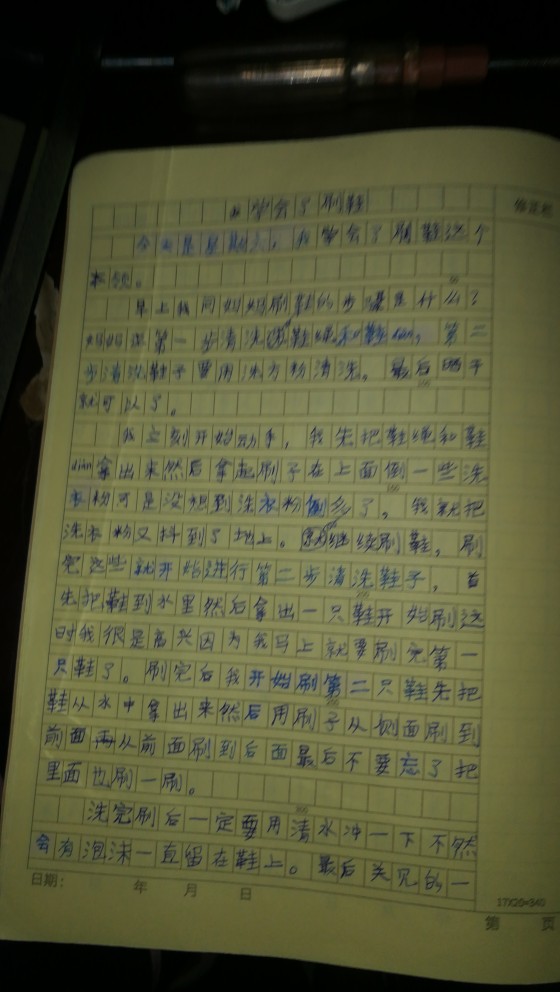 学会了刷鞋
修正栏
今天是星期六，我学会了刷鞋这个
本领。
早上我问妈妈刷鞋的步骤是什么？
妈妈说第一步清洗鞋绳和鞋dian，第二
步清洗鞋子要用洗衣粉清洗。最后晒干
就可以了。
我立刻开始动手，我先把鞋绳和鞋
dian拿出来然后拿起刷子在上面倒一些洗
衣粉可是没想到洗衣粉倒多了，我就把
洗衣粉又抖到了地上。继续刷鞋，刷
完这些就开始进行第二步清洗鞋子，首
先把鞋到水里然后拿出一只鞋开始刷这
时我很是高兴因为我马上就要刷完第一
只鞋了。刷完后我开始刷第二只鞋先把
鞋从水中拿出来然后用刷子从侧面刷到
前面再从前面刷到后面最后不要忘了把
里面也刷一刷。
洗完刷后一定要用清水冲一下不然
会有泡沫一直留在鞋上。最后关见的一
日期： 年 月 日
17X20=340
第 页